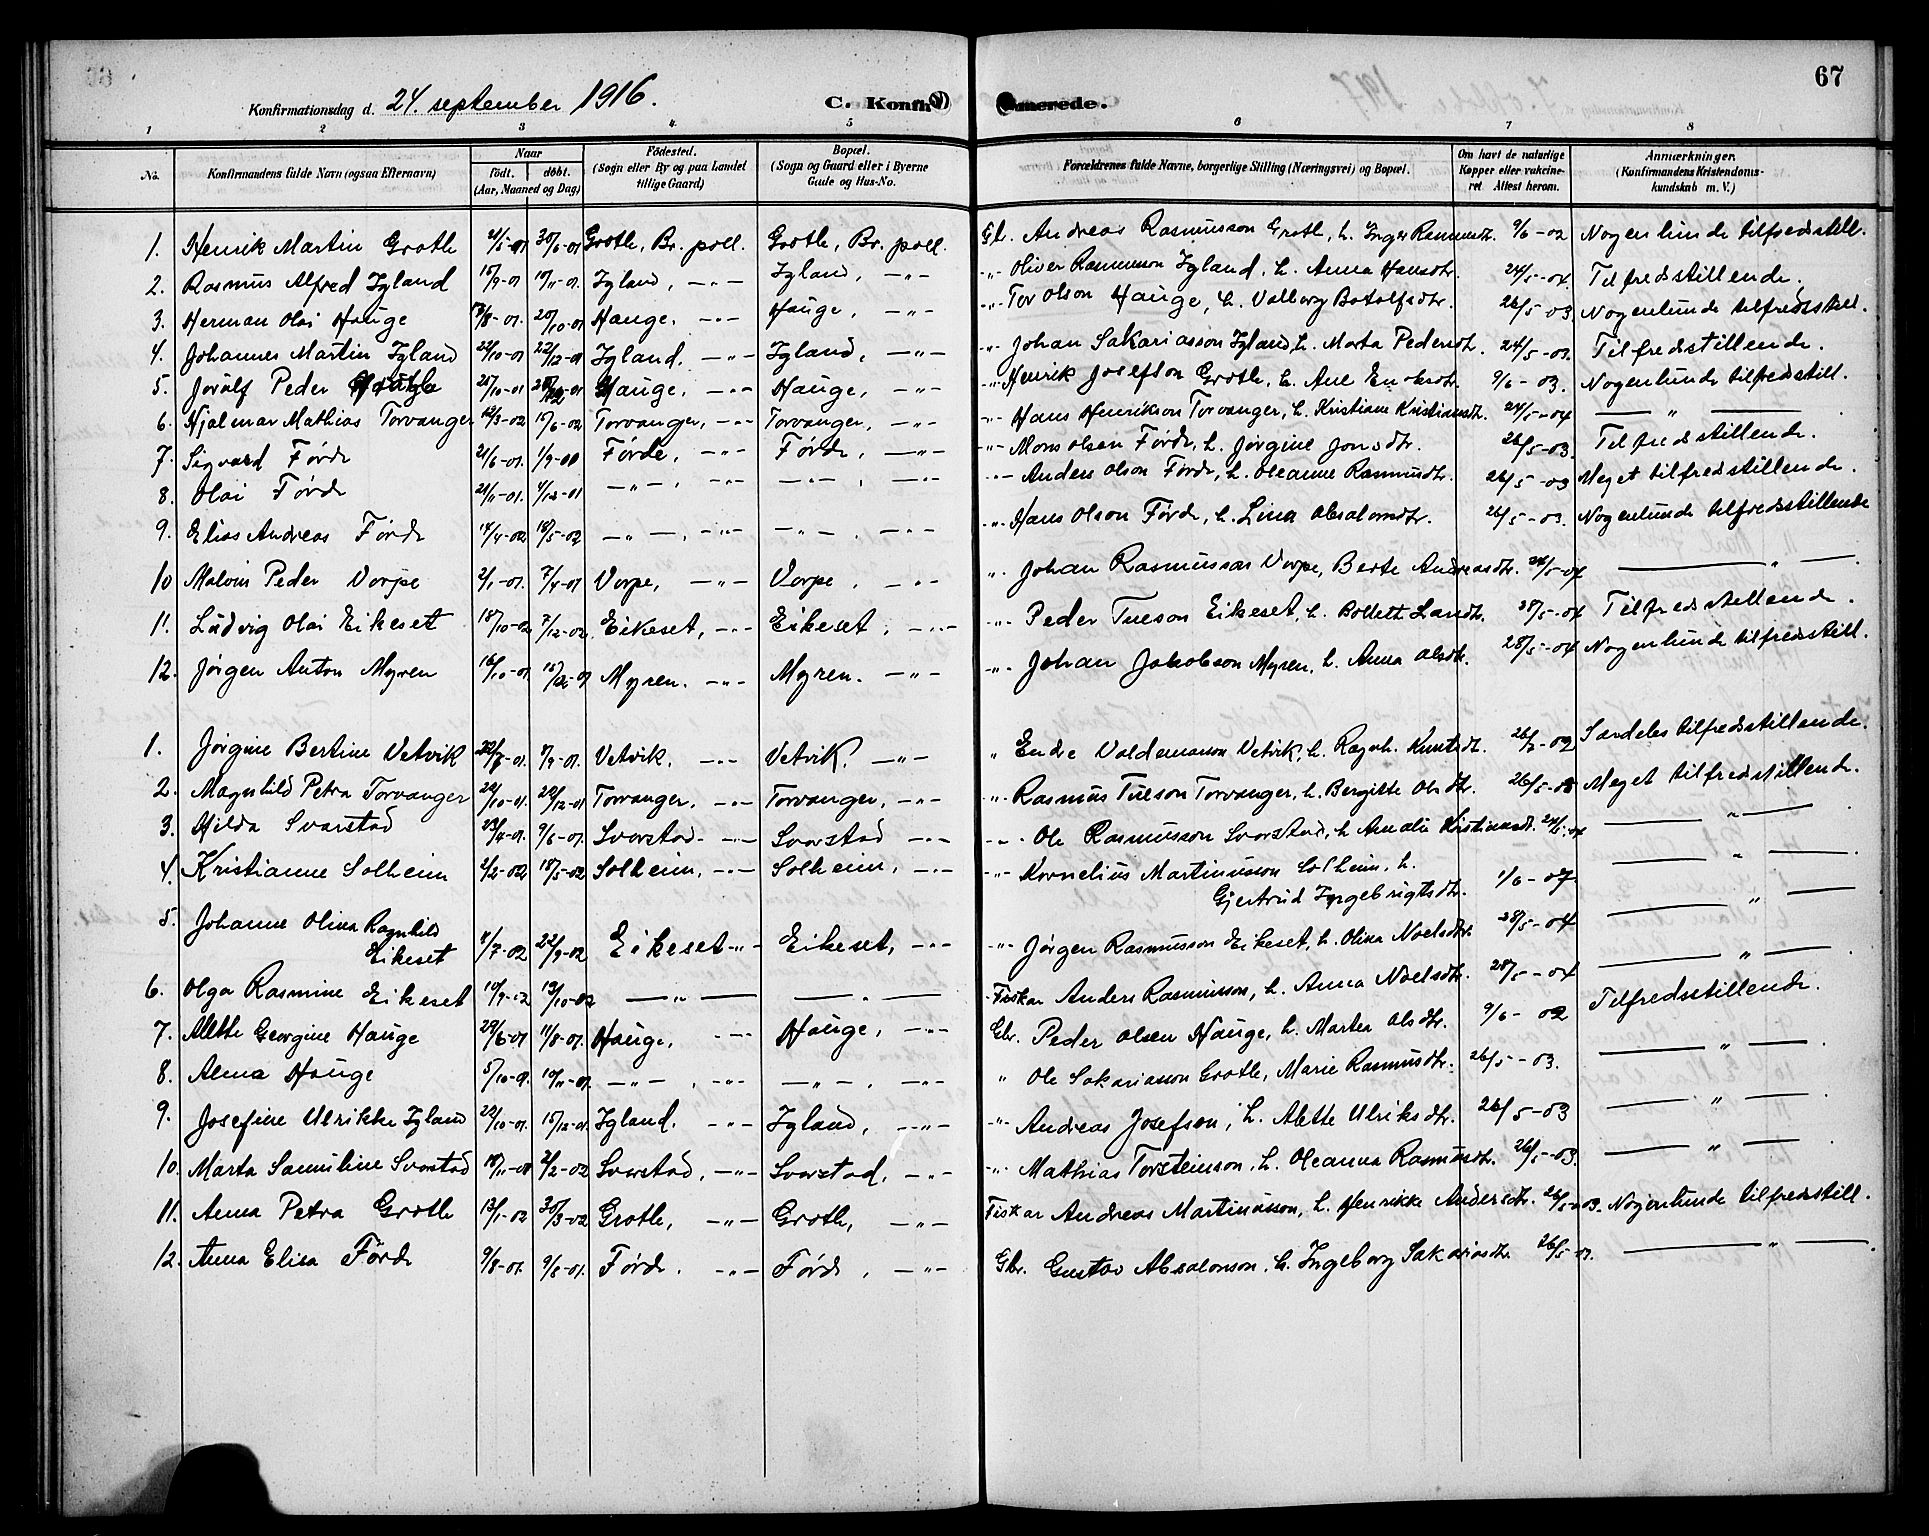 67
Konfirmationsdag d. 24. september 1916. C. Konfirmerede.
1 2 3 4 5 6 7 8
No. Konfirmandens fulde Navn (ogsaa Efternavn) Naar født. døbt. (Aar, Maaned og Dag) Födested. (Sogn eller By og paa Landet tillige Gaard) Bopæl. (Sogn og Gaard eller i Byerne Gade og Hus-No. Forældrenes fulde Navne, borgerlige Stilling (Næringsvei) og Bopæl. Om havt de naturlige Kopper eller vakcineret Attest herom. Anmærkninger. (Konfirmandens Kristendomskundskab m. V.)
1. Henrik Martin Grotle 30/6-01 Grotle, Br. poll. Grotle, Br. poll. Gbr. Andreas Rasmusson Grotle, h. Inger Rasmusdtr. 9/6-02 Nogenlunde tilfredsstill.
2. Rasmus Alfred Igland 15/9-01 Igland, -"- Igland, -"- -"- Oliver Rasmusson Igland, h. Anna Hansdtr. 24/5-04. Tilfredstillende.
3. Herman Olai Hauge 20/10-01 Hauge. -"- Hauge, -"- -"- Tor Olson Hauge, h. Valborg Botolfsdtr. 26/5-03 Nogenlunde tilfredsstill.
4. Johannes Martin Igland 22/12-01 Igland. -"- Igland, -"- -"- Johan Sakariasson Igland, h. Marta Pedersdtr. 24/5-03. Tilfredstillende.
5. Jorulf Peder 25/10-01 Hauge, -"- Hauge, -"- -"- Henrik Josefson Grotle, h. Ane Enoksdtr. 9/6-03. Nogenlunde tilfredsstill.
6. Hjalmar Mathias Torvanger 12/3-02 15/6-02 Torvanger, -"- Torvanger, -"- -"- Hans Henrikson Torvanger, h. Kristiane Kristiansdtr. 24/5-04 — " —
7. Sigvard Førde 21/6-01. 1/9-01 Førde, -"- Førde, -"- -"- Mons Olsen Førde, h. Jørgine Jonsdtr. 26/5-03. Tilfredsstillende.
8. Olai Førde 21/11-01. 4/12-01 -"-, -"- -"-, -"- -"- Anders Olson Førde, h. Oleanne Rasmusdtr. 26/5-03 Meget tilfredstillende.
9. Elias Andreas Førde 14/4-02 18/5-02 -"-, -"- -"-, -"- -"- Hans Olson Førde, h. Lina Absalonsdtr. 26/5-03. Nogenlunde tilfredsstillende
10 Malvin Peder Vorpe 2/1-01. 7/4-01 Vorpe, -"- Vorpe, -"- " Johan Rasmusson Vorpe, Berte Andreasdtr. 24/5-04 — " —
11. Ludvig Olai Eikeset 18/10-02 7/12-02. Eikeset, -"- Eikeset, -"- -"- Peder Tueson Eikeset, h. 28/5-04 Tilfredsstellende.
12. Jørgen Anton Myren 16/10-01. Myren. -"- Myren. -"- -"- Johan Jakobson Myren, h. Anna Olsdtr. 28/5-04 Nogenlunde tilfredsstill.
1. Jørgine Bertine Vetvik Vetvik. -"- Vetvik. -"- " Endre Valdemarson Vetvik, h. Ragnh. Knutsdtr. Særdeles tilfredsstillende.
2. Magnhild Petra Torvanger 22/12-01 Torvanger. -"- Torvanger, -"- -"- Rasmus Tueson Torvanger, h. Bergitte Olsdtr. Meget tilfredsstillende.
3. Hilda Svarstad 23/4-01. 9/6-01. Svorstad. -"- Svorstad -"- -"- Ole Rasmusson Svorstad, h. Amalie Kristiansdtr. — " —
4. Kristianne Solheim 2/2-02 18/5-02 Solheim, -"- Solheim, -"- -"- Kornelius Martinusson Solheim, h.
Gjertrud Ingebrigtsdtr. 1/6-07 — " —
5. Johanne Olina Ragnhild
Eikeset 11/7-02 22/9-02 Eikeset -"- Eikeset, -"- -"- Jørgen Rasmusson Eikeset, h. Olina Noelsdtr. 28/5-04 — " —
6. Olga Rasmine Eikeset 10/9-02 19/10-02 — " — — " — Fiskar Anders Rasmusson, h. Anna Noelsdtr. 28/5-04 — " —
7. Alette Georgine Hauge 29/6-01 11/8-01. Hauge, -"- Hauge, -"- Gbr. Peder Olsen Hauge, h. Marta Olsdtr. 9/6-02 Tilfredsstillende.
8. Alma Hauge 5/10-01. 10/11-01. -"-, -"- -"-, -"- " Ole Sakariasson Grotle, Marie Rasmusdtr. 26/5-03. — " —
9. Josefine Ulrikke Igland 22/10-01. 15/12-01. Igland. -"- Igland, -"- -"- Andreas Josefson, h. Alette Ulriksdtr. 26/5-03 — " —
10. Marta Samuline Svorstad 2/2-02 Svorstad, -"- Svorstad. -"- -"- Mathias Torsteinson, h. Oleanna Rasmusdtr. 26/5-03. — " —
11. Anna Petra Grotle 13/1-02 30/3-02 Grotle, -"- Grotle, -"- Fiskar Andreas Martinusson, h. Henrikke Andersdtr. 26/5-03. Nogenlunde tilfredsstill.
12. Anna Elisa Førde Førde. -"- Førde, -"- Gbr. Gustav Absalonson, h. Ingeborg Sakariasdtr. — " —